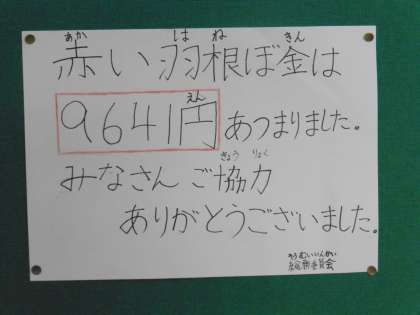 あか は ね きん
赤い羽根ぼ金は
えん
9641円あつまりました。
きょう りょく
みなさんご協力
ありがとうございました。
そうむいいんかい
総務委員会